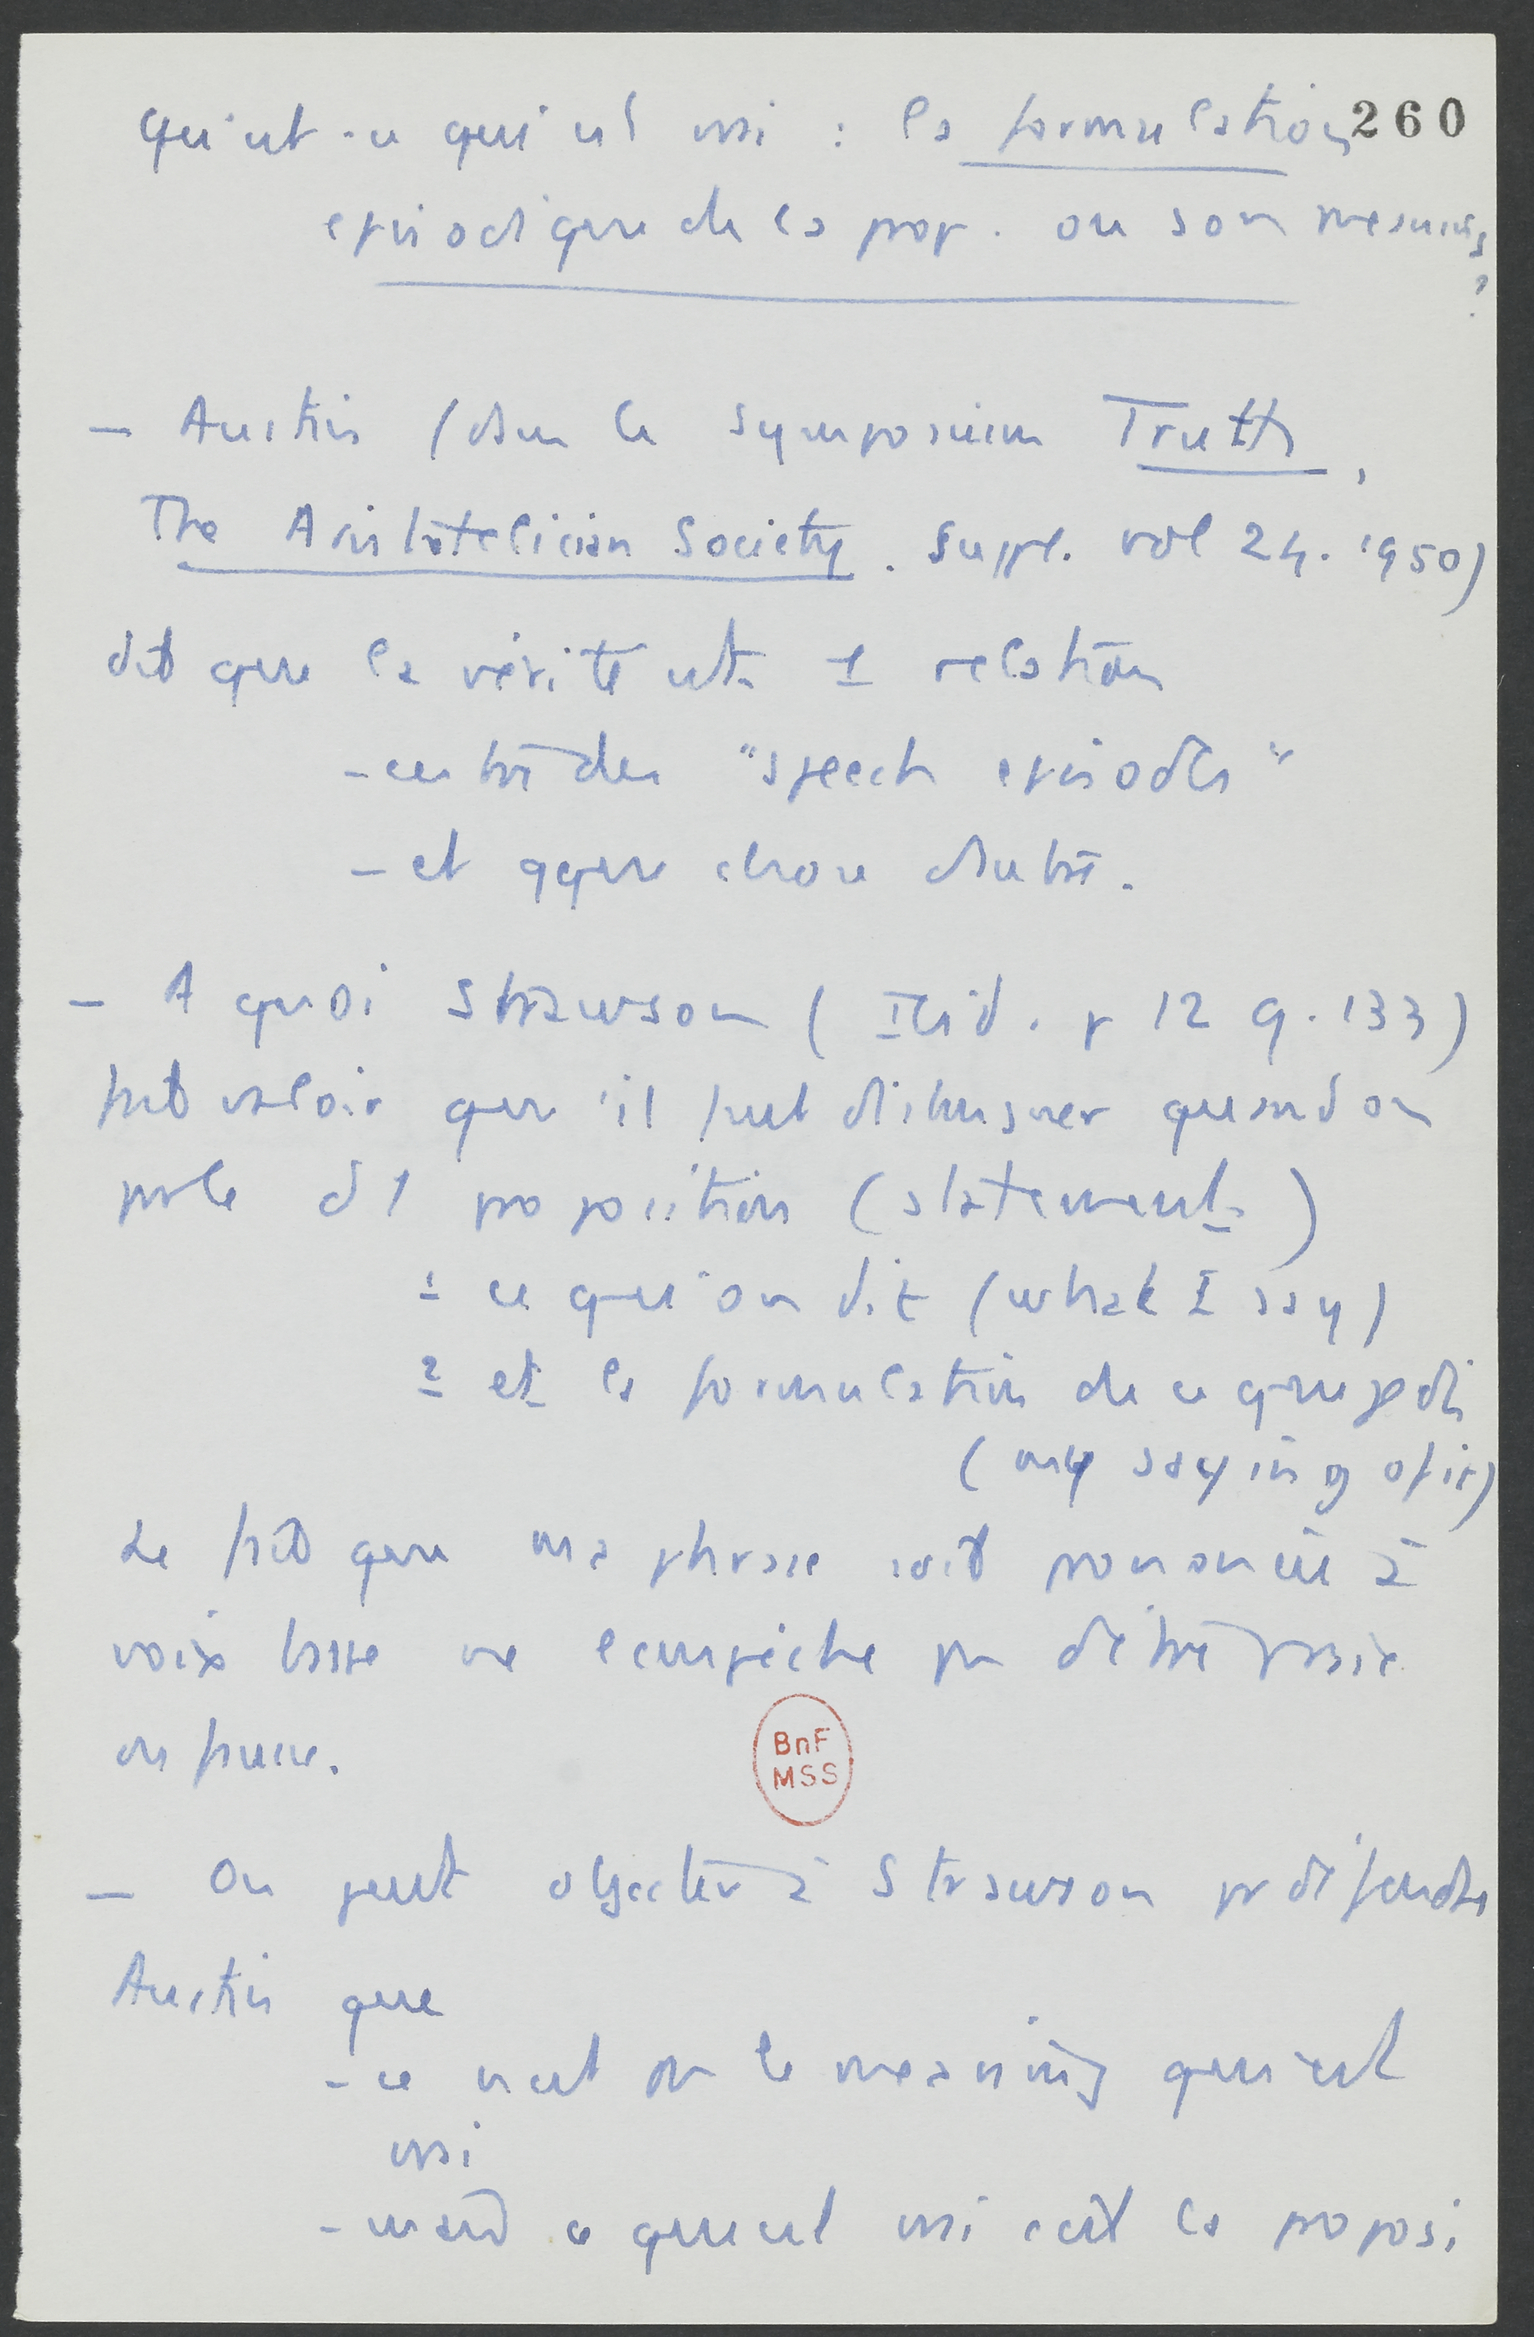 Qu'est-ce qui est vrai : la formulation 260
episodique de la prop. ou son meaning
?
- Austin (dans le symposium Truth,
The Aristotelician Society. Suppl. vol 24. 1950)
dit que la vérité est 1 relation
- entre des "speech episodes"
- et qque chose d'autre.
- A quoi Strawson (Ibid. p 129.133)
fait valoir qu'il faut distinguer quand on
parle d'1 proposition (statement)
1 ce qu'on dit (what I say)
2 et la formulation de ce que je dis
(my saying of it)
Le fait que ma phrase soit prononcée à
voix basse ne l'empêche pas d'être vraie
ou fausse.
BnF
MSS
- On peut objecter à Strawson pr défendre
Austin que
- ce n'est pas le meaning qui est
vrai
- mais ce qui est vrai c'est la proposi